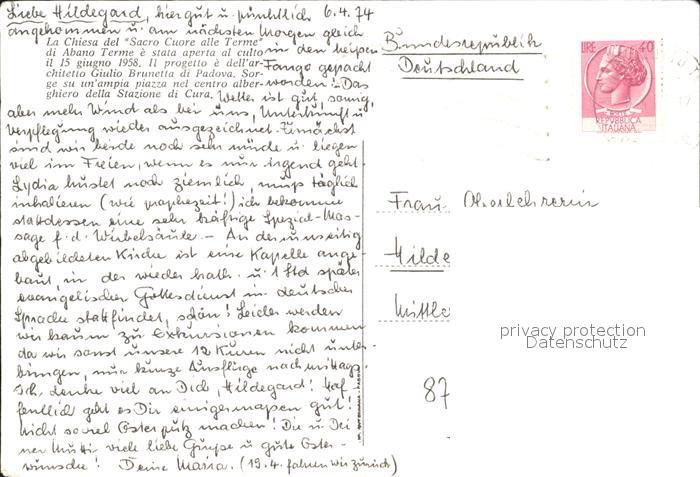 Liebe Hildegard, hier gut u. pünktlich 6.4.74
angekommen u. am nächsten Morgen gleich
La Chiesa del "Sacro Cuore alle Terme"
di Abano Terme è stata aperta al culto
il 15 giugno 1958. Il progetto è dell'ar-
chitetto Giulio Brunetta di Padova. Sor-
ge su un'ampia piazza nel centro alber-
ghiero della Stazione di Cura.
in den heißen
Fango gepackt
worden! Das
Wetter ist gut, sonnig,
aber mehr Wind als bei uns, Unterkunft u.
Verpflegung wieder ausgezeichnet. Zunächst
sind wir beide noch sehr müde u. liegen
viel im Freien, wenn es nur irgend geht.
Lydia hustet noch ziemlich, muß täglich
inhalieren (wie prophezeit!) ich bekomme
stattdessen eine sehr kräftige Spezial-Mas-
sage f. d. Wirbelsäule. – An der umseitig
abgebildeten Kirche ist eine Kapelle ange-
baut, in der wieder kath. u. 1 Std später
evangelischer Gottesdienst in deutscher
Sprache stattfindet, schön! Leider werden
wir kaum zu Exkursionen kommen
da wir sonst unsere 12 Kuren nicht unter-
bringen, nur kurze Ausflüge nachmittags.
Ich denke viel an Dich, Hildegard! Hof-
fentlich geht es Dir einigermaßen gut!
Nicht soviel Osterputz machen! Dir u. Dei-
ner Mutti viele liebe Grüße u. gute Oster-
wünsche! Deine Maria. (19.4. fahren wir zurück)
Bundesrepublik
Deutschland
LIRE 40
POSTE
REPVBBLICA
ITALIANA
Frau Oberlehrerin
Hilde
Mittle
87
privacy protection
Datenschutz